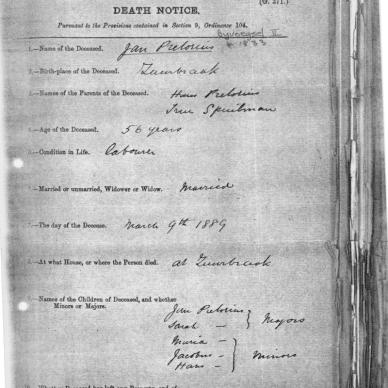 (G. 271.)
DEATH NOTICE.
Pursuant to the Provisions contained in Section 9, Ordinance 104.
1883
1.—Name of the Deceased. Jan Pretorius
2.—Birth-place of the Deceased. Zuurbraak
3.—Names of the Parents of the Deceased. Hans Pretorius
Spielman
4.—Age of the Deceased. 56 years
5.—Condition in Life. Labourer
6.—Married or unmarried, Widower or Widow. Married
7.—The day of the Decease. March 9th 1889
8.—At what House, or where the Person died. at Zuurbraak
9.—Names of the Children of Deceased, and whether
Minors or Majors.
Jan Pretorius
Sarah — Majors
Maria —
Jacobus — Minors
Hans —